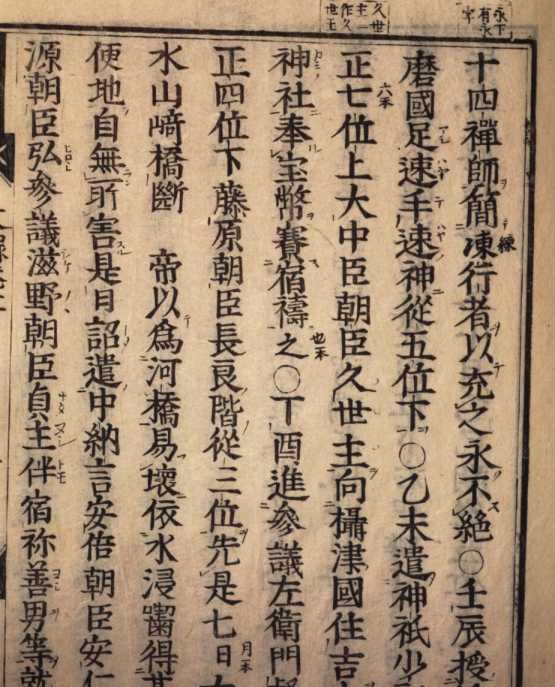 永下
有永
字
久世
主一
作久
世王
十四禪師簡凍行者以充之永不絶○壬辰授
練
磨國足速手速神從五位下○乙未遣神祇少
正七位上大中臣朝臣久世主向攝津國住吉
六本
神社奉宝幣賽宿禱之○丁酉進參議左衛門督
也本
正四位下藤原朝臣長良階從三位先是七日
月本
水山﨑橋斷　帝以爲河橋易壞依水浸齧得其
便地自無所害是日詔遣中納言安倍朝臣安仁
源朝臣弘參議滋野朝臣貞主伴宿祢善男等就